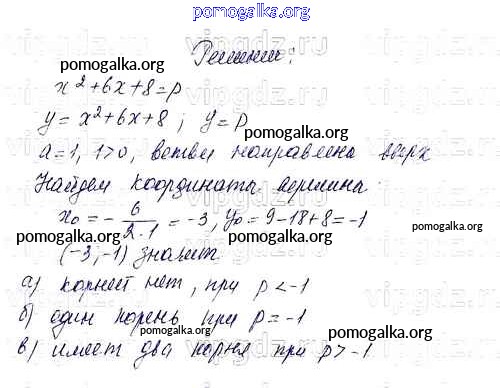 pomogalka.org
Решение:
pomogalka.org pomogalka.org
x²+6x+8=p
y=x²+6x+8; y=p
pomogalka.org
a=1, 1>0, ветви направлена вверх
Найдем координата вершина
x₀ = - 6/2·1 = -3, y₀=9-18+8=-1
pomogalka.org pomogalka.org
(-3;-1) значит
а) корней нет, при p<-1
pomogalka.org
б) один корень при p=-1
pomogalka.org pomogalka.org
в) имеет два корня при p>-1